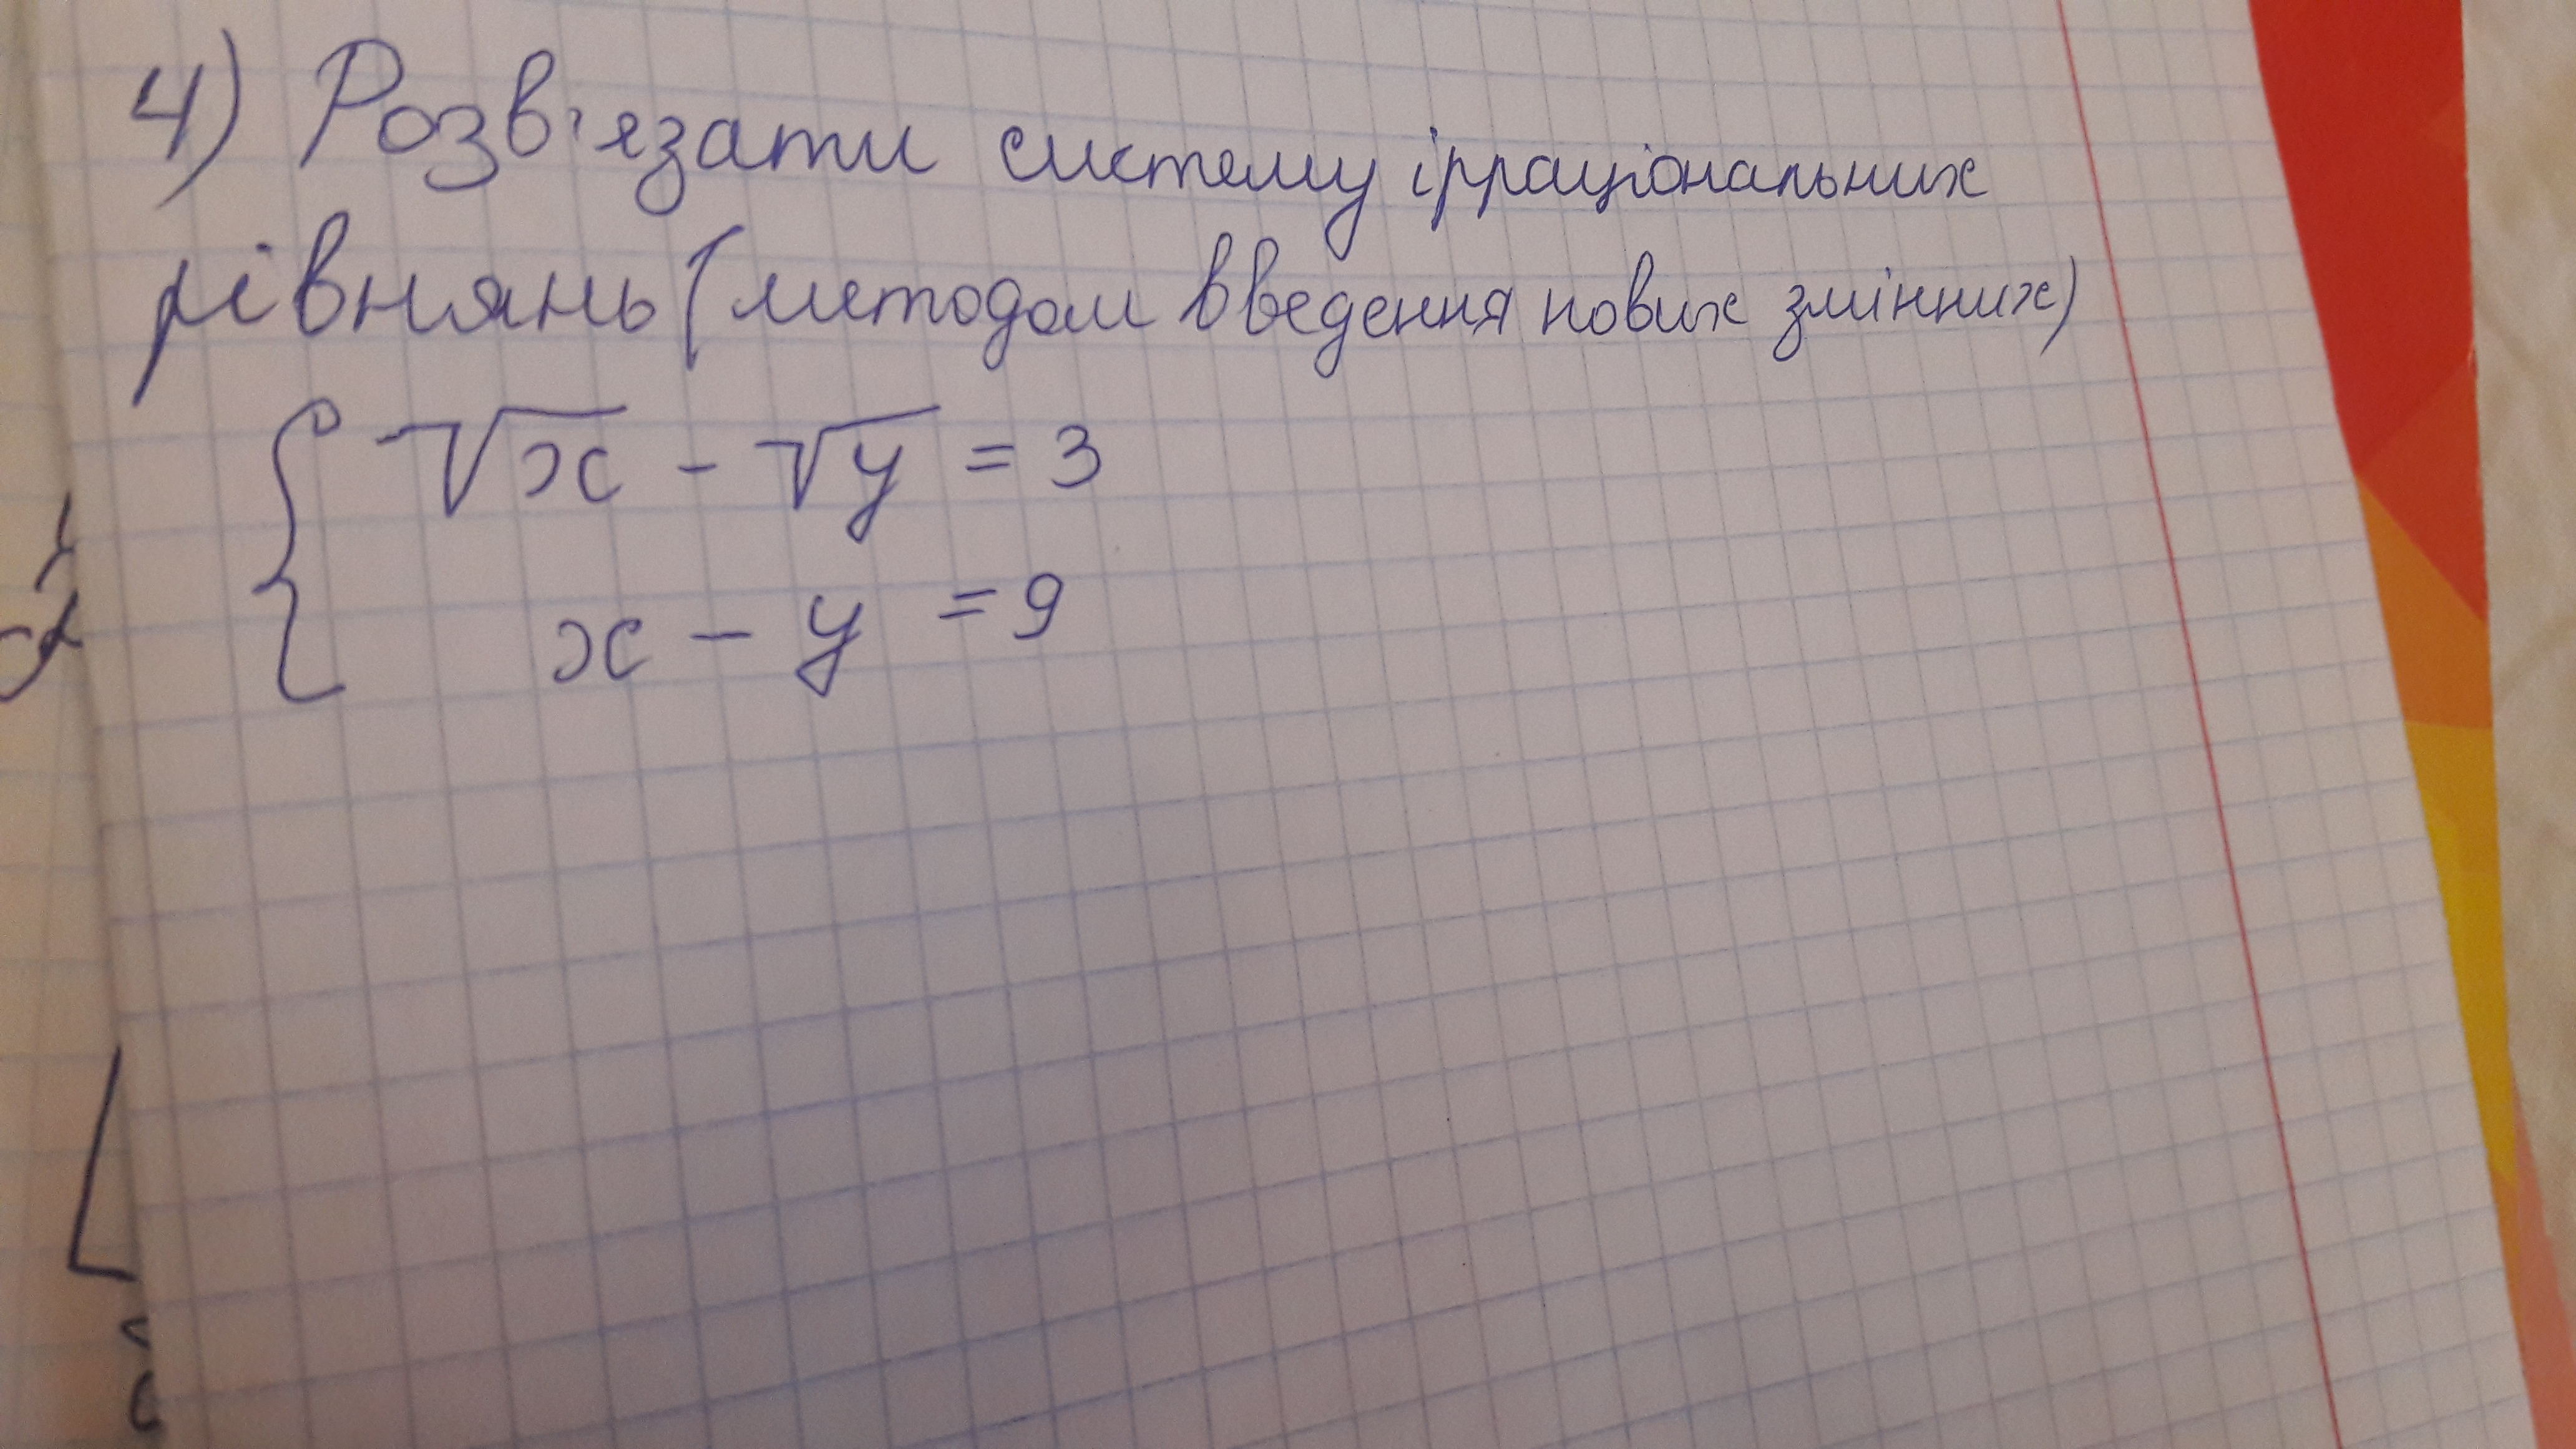 4) Розв'язати систему ірраціональних
рівнянь (методом введення нових змінних)
√x - √y = 3
x - y = 9